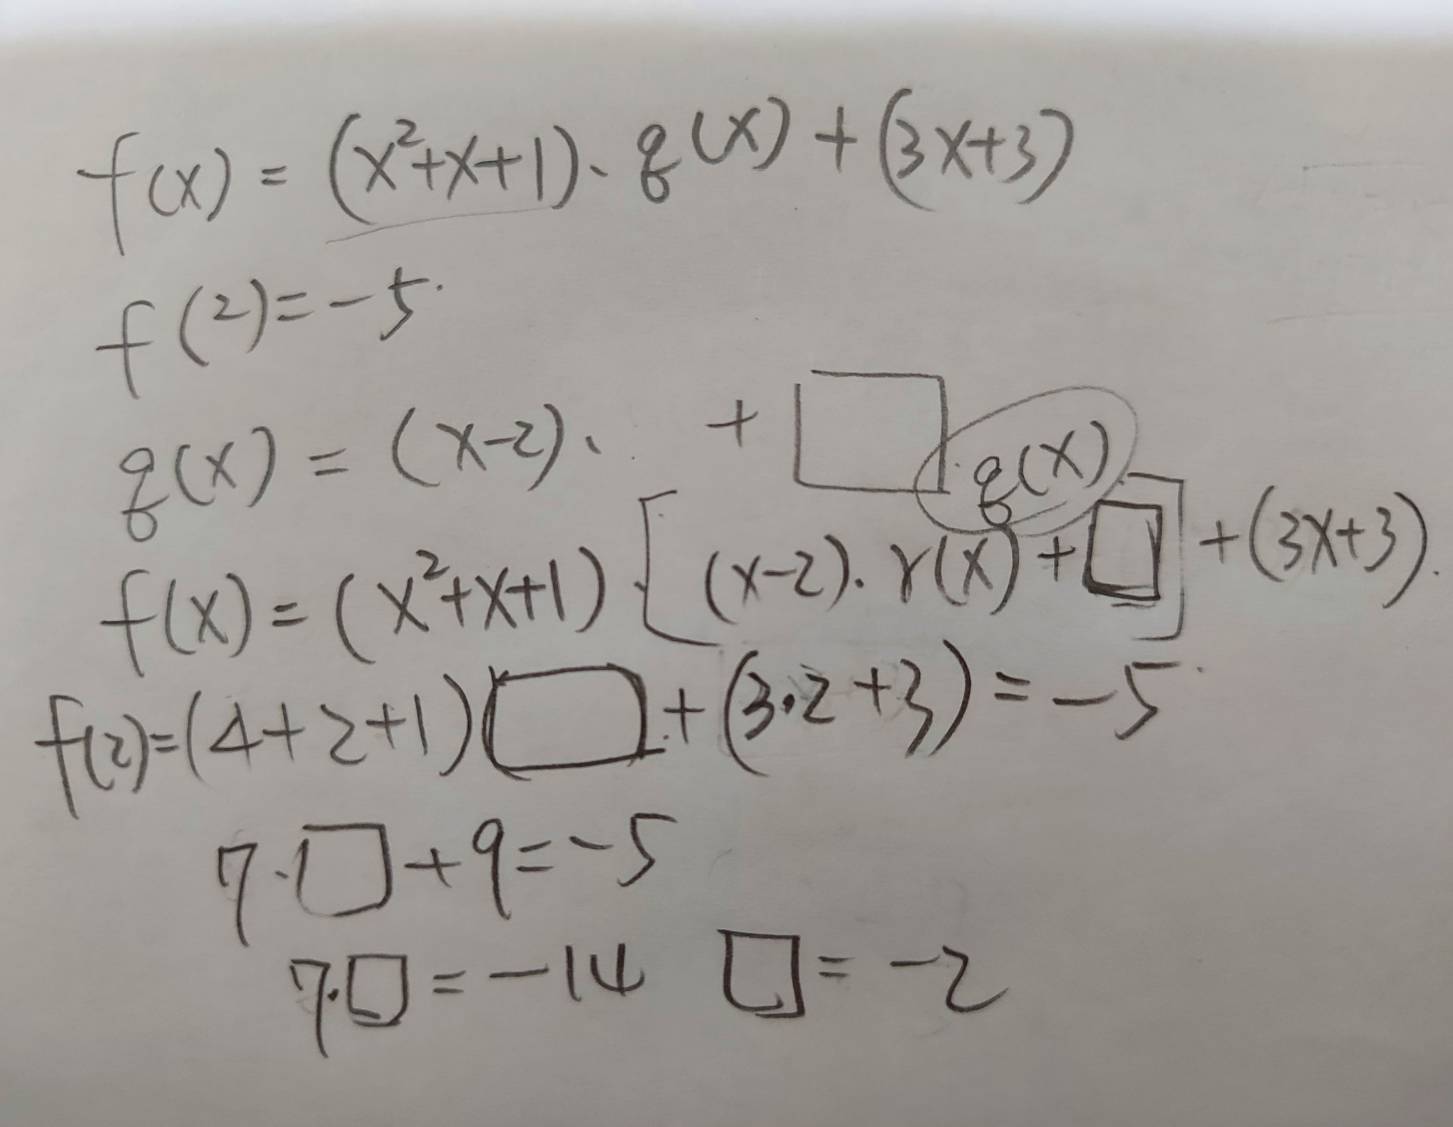 f(x) = (x²+x+1)· q(x) + (3x+3)
f(2)=-5.
q(x) = (x-2)· + □
q(x)
f(x) = (x²+x+1)·[(x-2)·r(x)+□]+(3x+3).
f(2)=(4+2+1)□+(3·2+3)=-5
7·□+9=-5
7·□=-14 □=-2